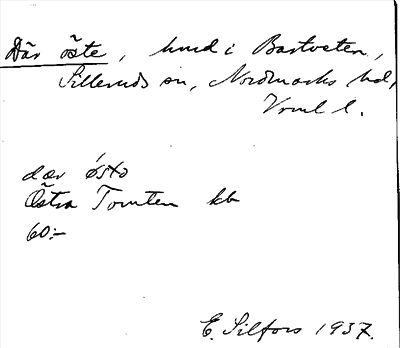 Där öste, hmd i Bastveten,
Silleruds sn, Nordmarks hd,
Vrml l.
dær östo
Östra Tomten kb
60:-
E. Silfors 1937.